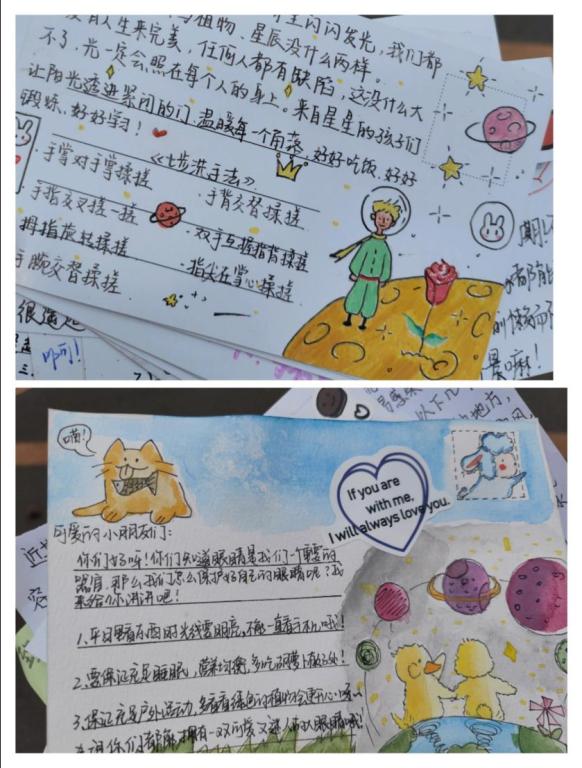 闪闪发光，我们都
植物、星辰没什么两样。
有人生来完美，任何人都有缺陷，这没什么大
不了，光一定会照在每个人的身上。来自星星的孩子们
让阳光透进紧闭的门，温暖每一个角落，好好吃饭，好好
锻炼，好好学习！
《七步洗手法》
手掌对手掌揉搓
手背交替揉搓
手指交叉搓一搓
双手互握指背揉搓
拇指旋转揉搓
指尖在掌心揉搓
手腕交替揉搓
喵！
If you are
with me,
I will always love you.
可爱的小朋友们：
你们好呀！你们知道眼睛是我们一个重要的
器官，那么我们怎么保护好自己的眼睛呢？我
来给你讲讲吧！
1.平日里看东西时光线要明亮，不能一直看手机哦！
2.要保证充足睡眠，营养均衡，多吃胡萝卜有好处！
3.保证充足户外活动，多看看绿色的植物会更开心
你们都能拥有一双可爱又迷人的大眼睛哦！